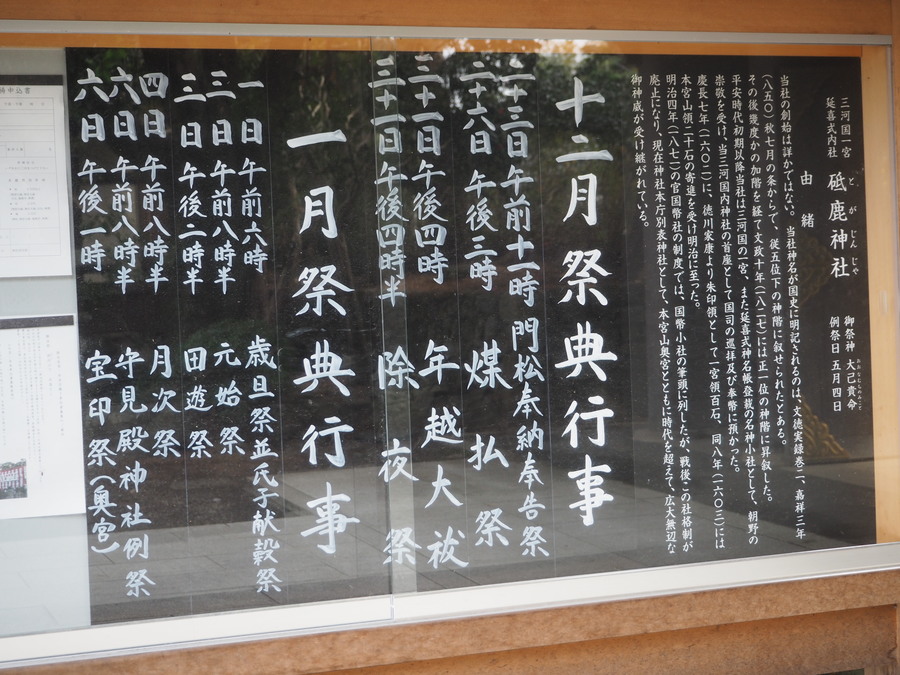 三河国一宮
延喜式内社
砥鹿神社
とがじんじゃ
御祭神 大己貴命
おおなむちのみこと
例祭日 五月四日
由緒
当社の創始は詳かではない。当社神名が国史に明記されるのは、文徳実録巻二、嘉祥三年
(八五〇)秋七月の条からで、従五位下の神階に叙せられたとある。
その後幾度かの加階を経て文政十年(八二七)には正一位の神階に昇叙した。
平安時代初期以降当社は三河国の一宮、また延喜式神名帳登載の名神小社として、朝野の
崇敬を受け、当三河国内神社の首座として国司の巡拝及び奉幣に預かった。
慶長七年(一六〇二)に、徳川家康より朱印領として一宮領百石、同八年(一六〇三)には
本宮山領二十石の寄進を受け明治に至った。
明治四年(一八七一)の官国幣社の制度では、国幣小社の筆頭に列したが、戦後この社格制が
廃止になり、現在神社本庁別表神社として、本宮山奥宮とともに時代を超えて、広大無辺な
御神威が受け継がれている。
十二月祭典行事
二十三日 午前十一時 門松奉納奉告祭
二十八日 午後三時 煤払祭
三十一日 午後四時 年越大祓
三十一日 午後四時半 除夜祭
一月祭典行事
一日 午前六時 歳旦祭並氏子献穀祭
三日 午前八時半 元始祭
三日 午後二時半 田遊祭
四日 午前八時半 月次祭
六日 午前八時半 守見殿神社例祭
六日 午後一時 宝印祭(奥宮)